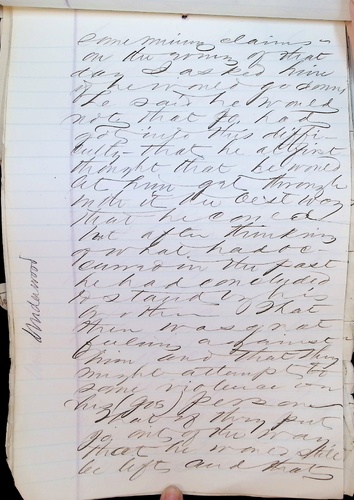 some mining claims
on the morning of that
day I asked him
if he would go some
He said he would
not, that Jo had
got into this diffi-
culty that he at first
thought that he would
let him get through
with it the best way
that he could
but after thinking
of what had oc-
curred in the past
he had concluded
to stand by his
brother, That
there was great
feeling against
him and that they
might attempt to
some violence on
his (Jo's) person
That if they put
Jo out of the way
that he would still
be left and that
Underwood